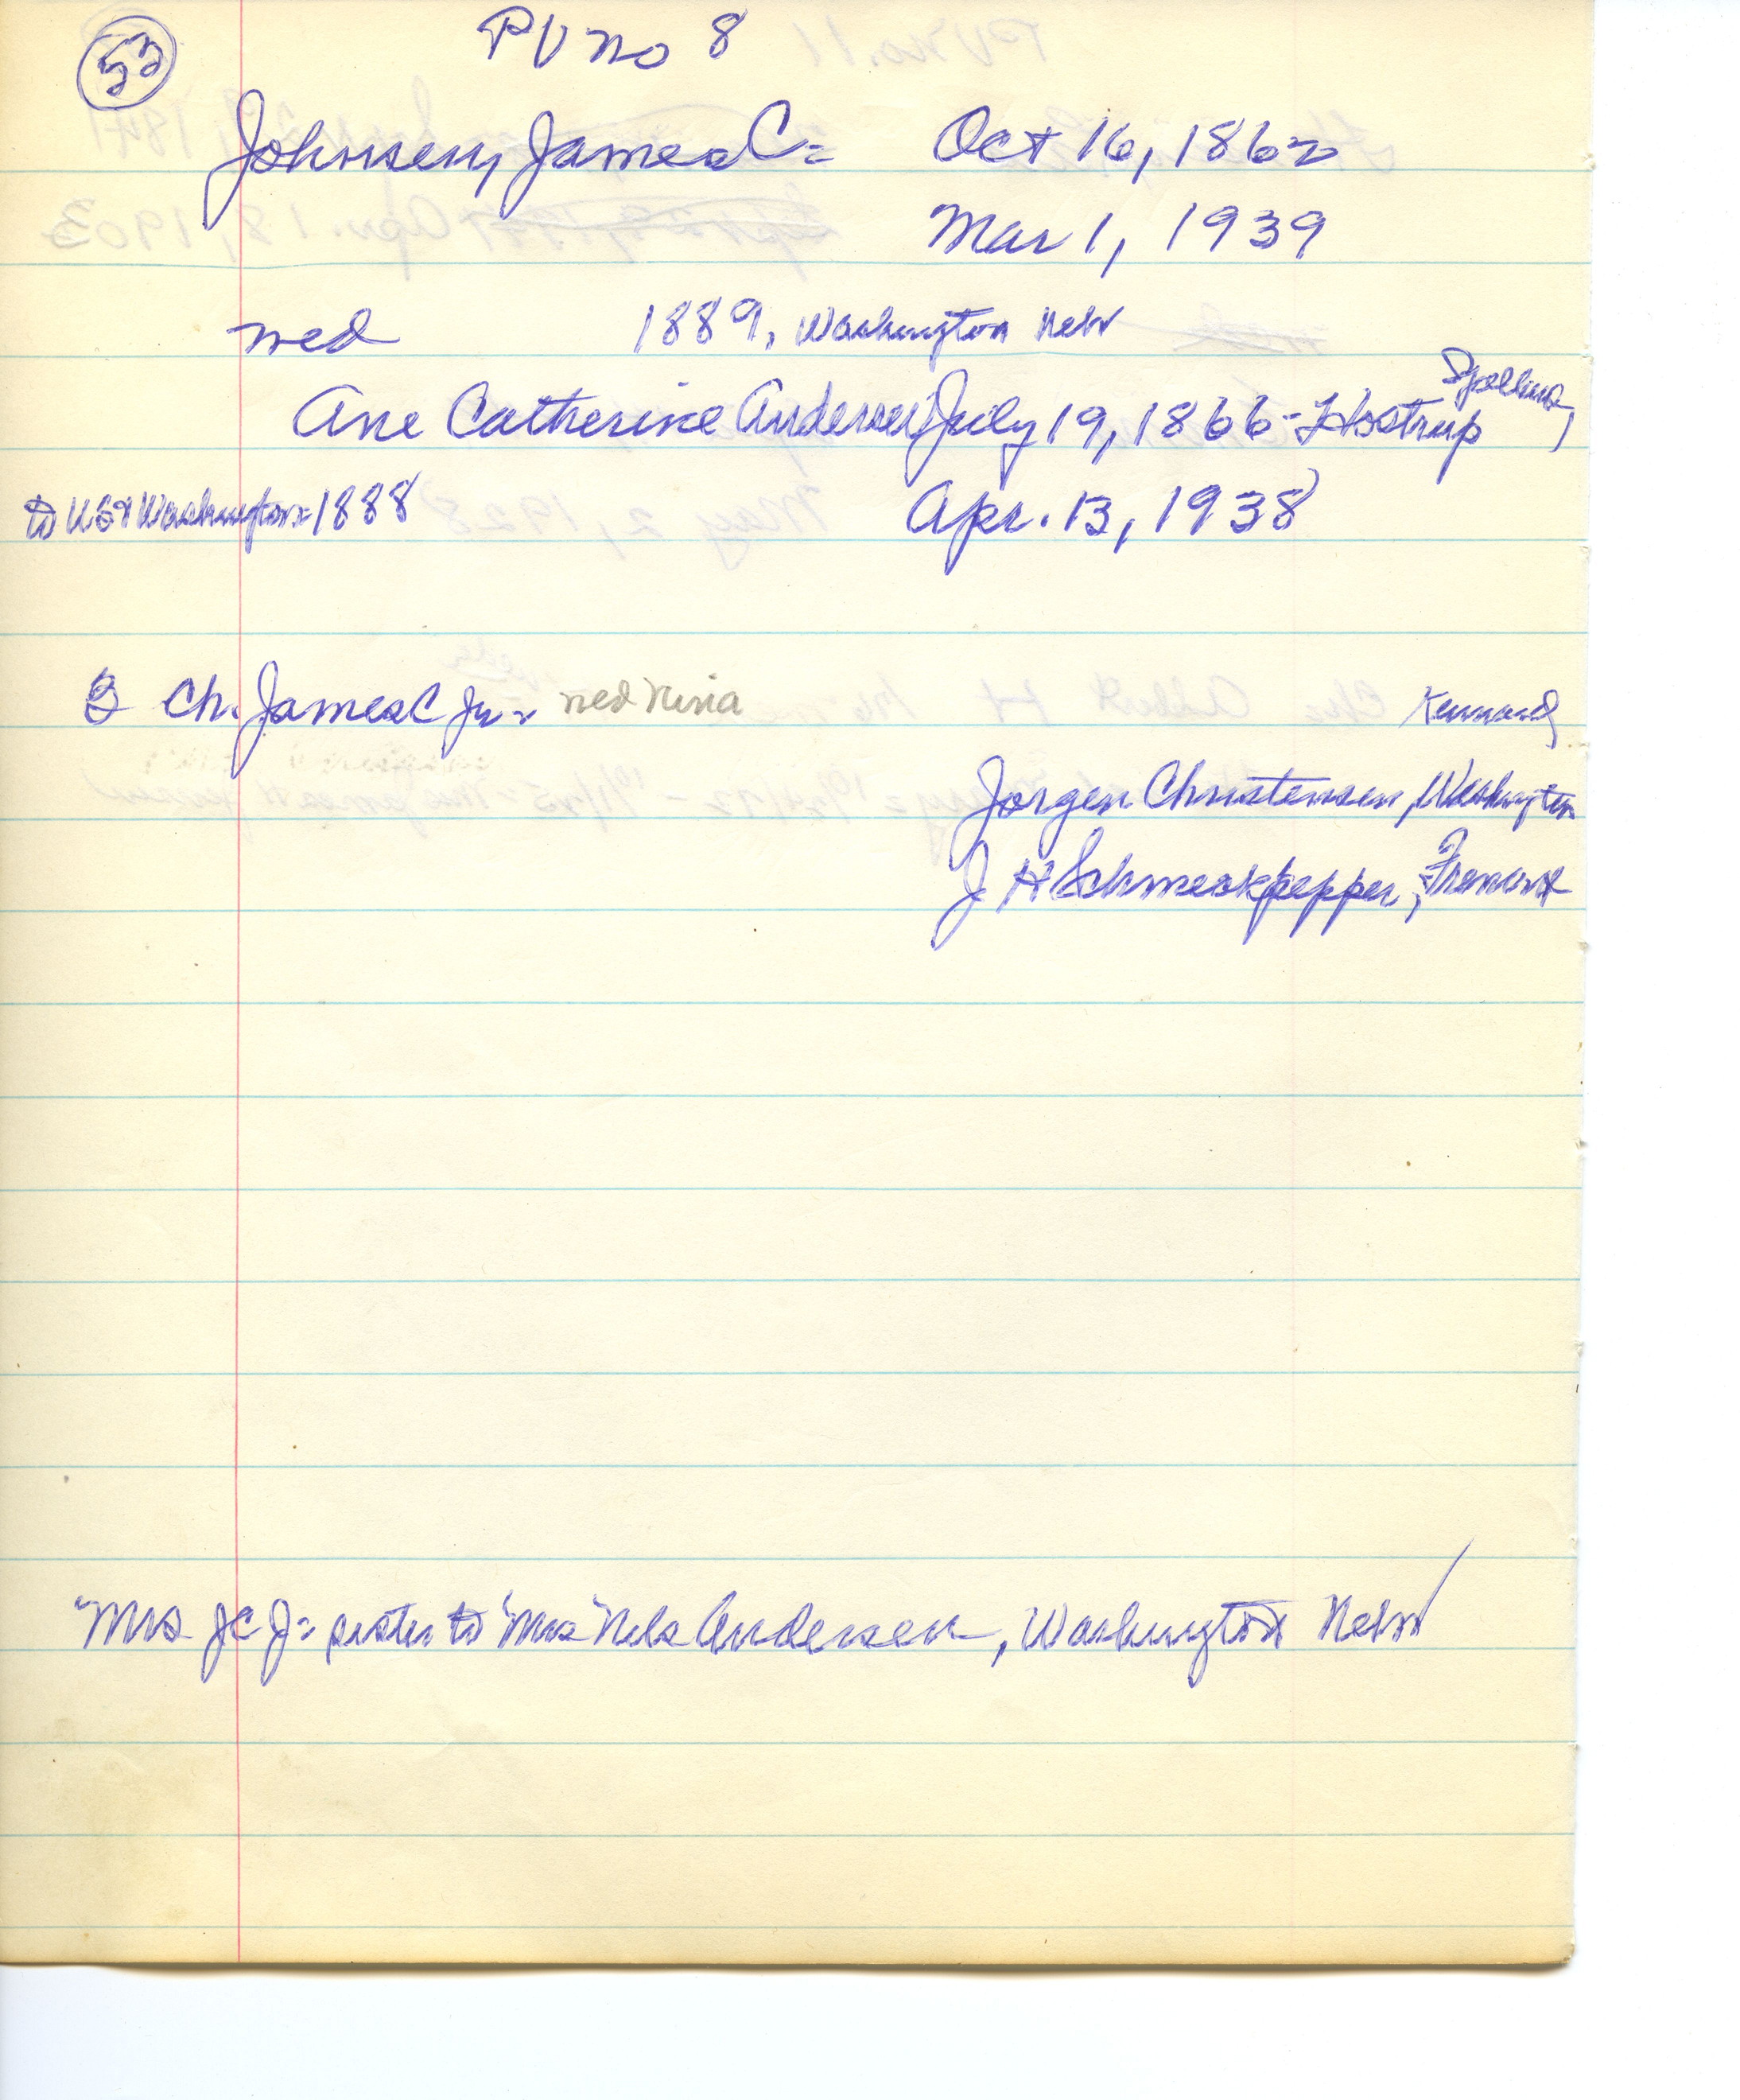 53
PV no 8
Johnsen, James C = Oct 16, 1862
Mar 1, 1939
wed 1889, Washington Nebr
Spelling
Ane Catherine Andersen July 19, 1866 - Hostrup
to US & Washington = 1888 Apr. 13, 1938
Ch. James C Jr = wed Nina Kennard
Jorgen Christensen, Washington
J H Schmeckpepper, Fremont
"Mrs J C J = sister to "Mrs" Nels Andersen, Washington Nebr